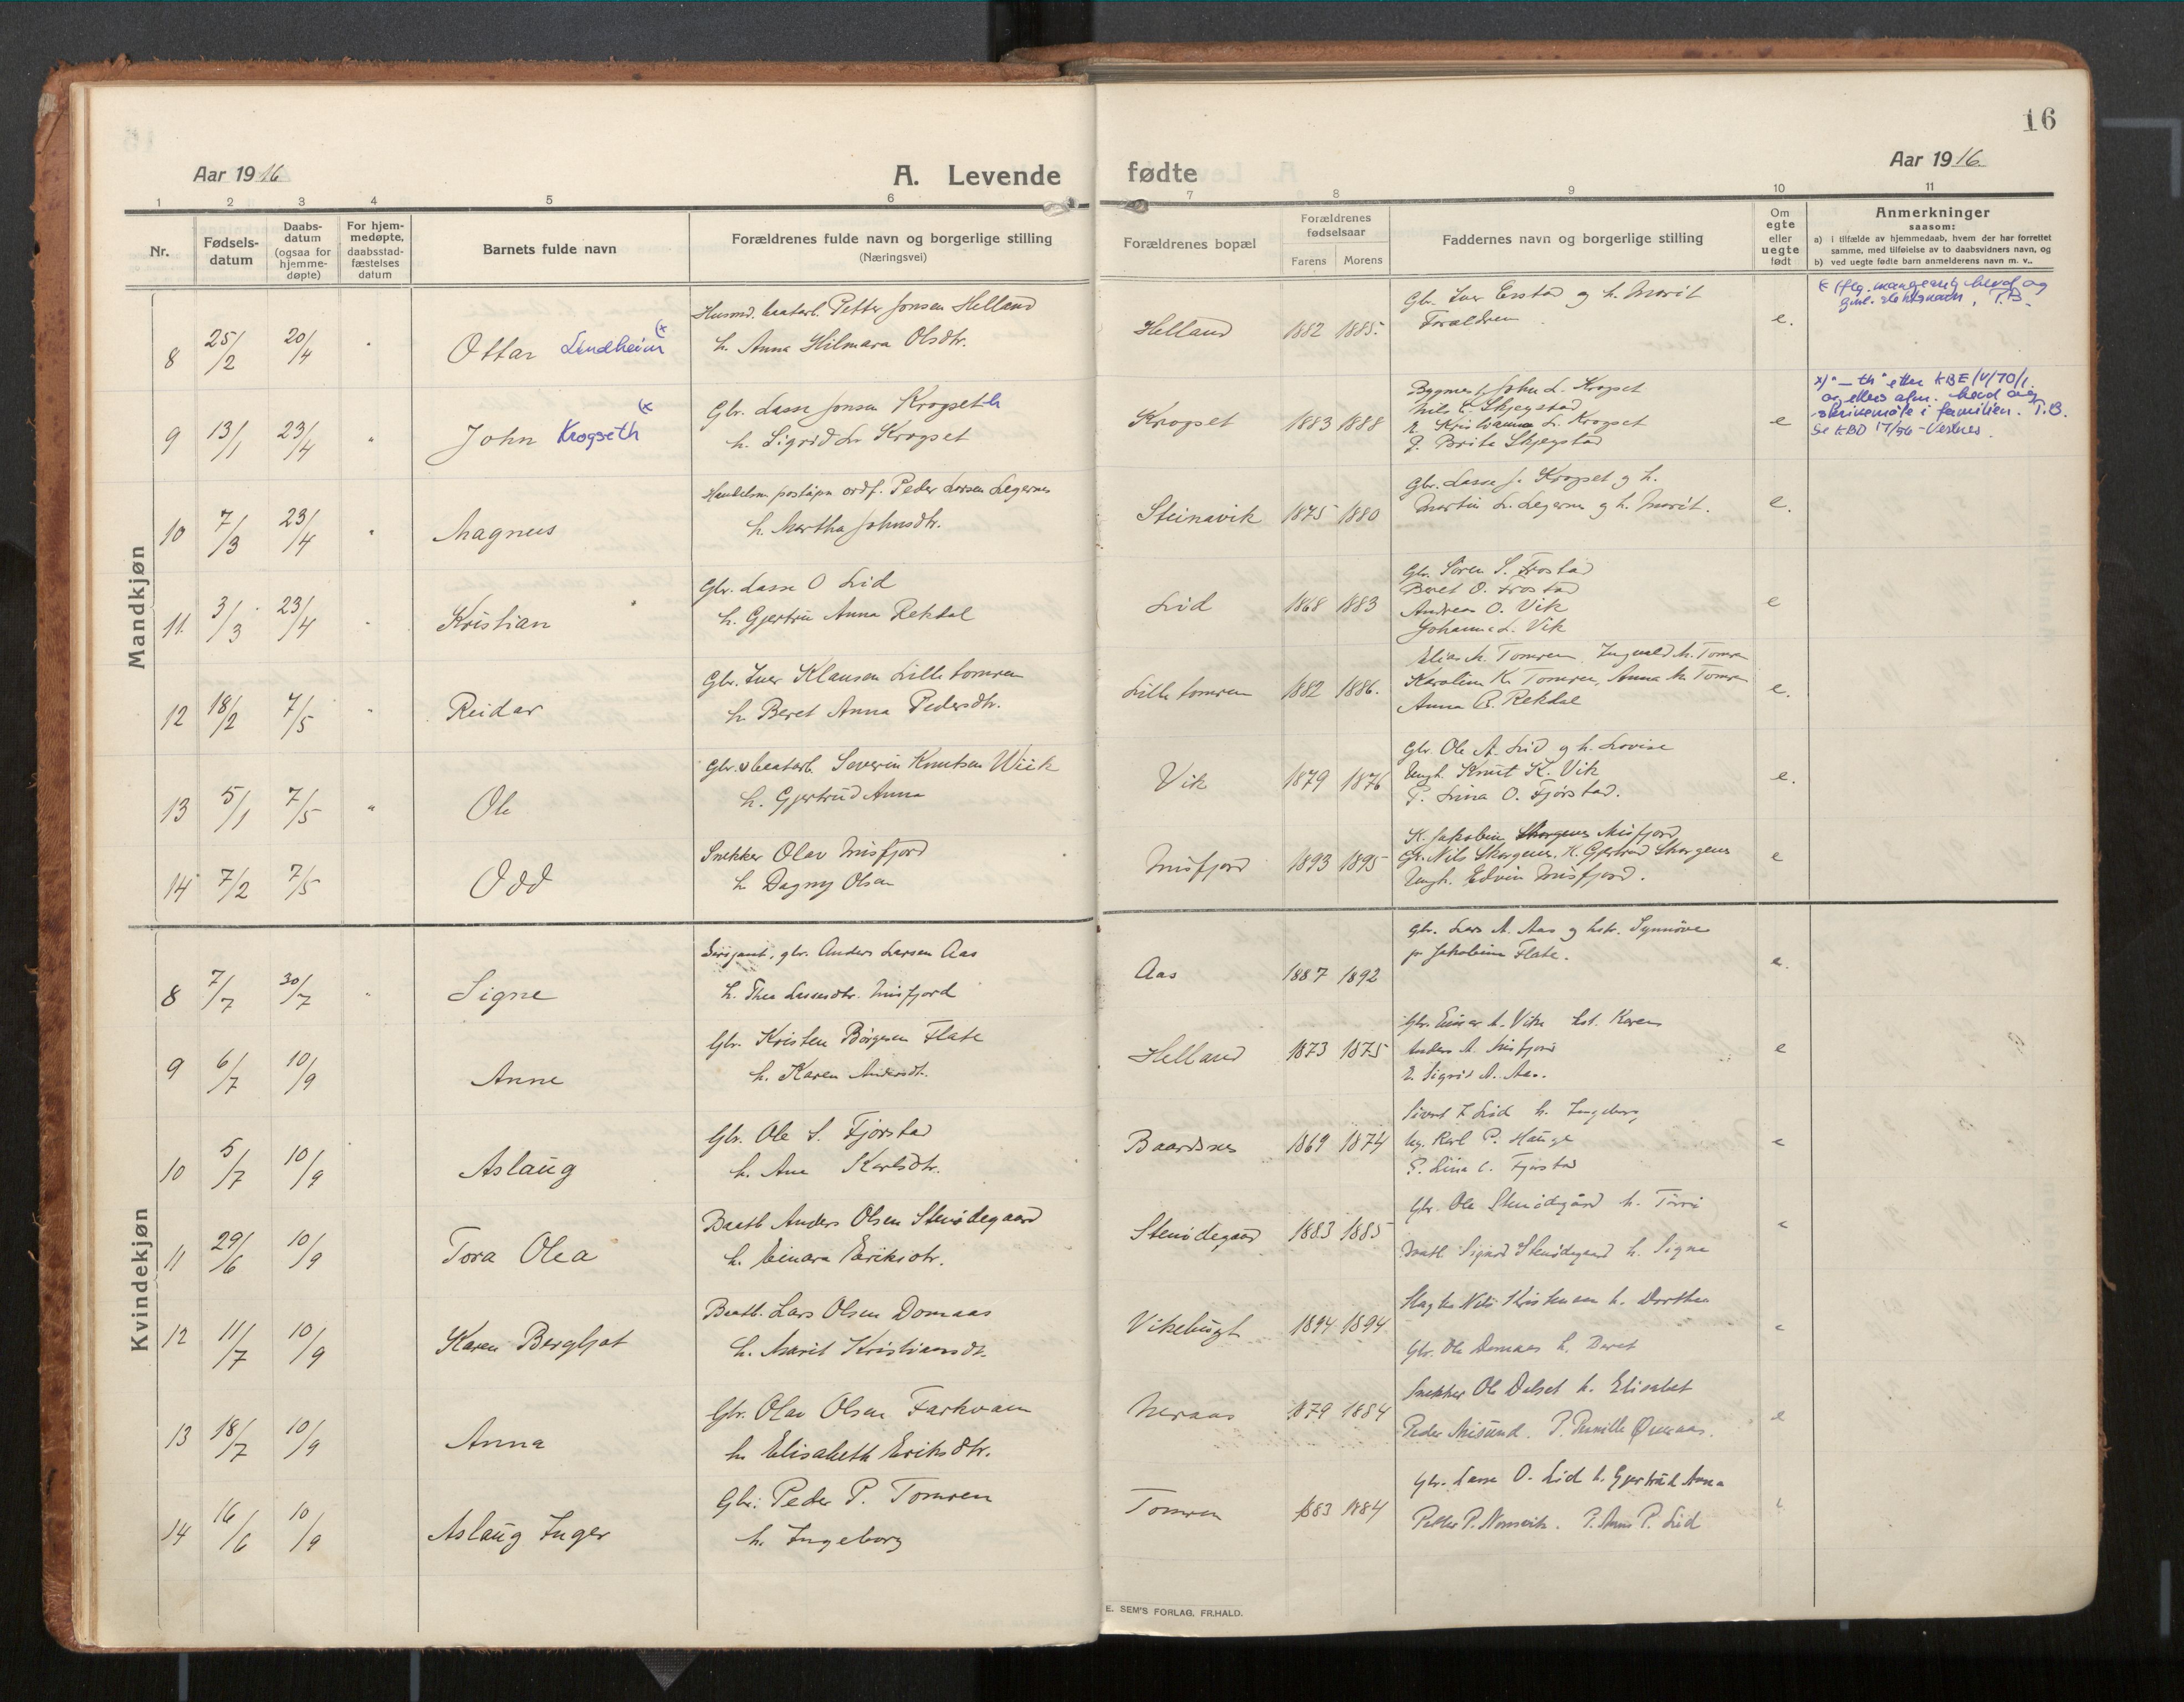 16
Aar 1916
A. Levende fødte
Aar 1916.
1 2 3 4 5 6 7 8 9 10 11
Nr.
Fødsels-
datum
Daabs-
datum
(ogsaa for
hjemme-
døpte)
For hjem-
medøpte,
daabsstad-
fæstelses
datum
Barnets fulde navn
Forældrenes fulde navn og borgerlige stilling
(Næringsvei)
Forældrenes bopæl
Forældrenes
fødselsaar
Farens Morens
Faddernes navn og borgerlige stilling
Om
egte
eller
uegte
født
Anmerkninger
saasom:
a) i tilfælde av hjemmedaab, hvem der har forrettet
samme, med tilføielse av to daabsvidners navn, og
b) ved uegte fødte barn anmelderens navn m. v..
Mandkjøn
8 25/2 20/4 " Ottar Lindheim (x
Husmd. baatarb. Petter Jonsen Helland
h. Anna Hilmara Olsdtr.
Helland 1882 1885.
Gbr. Iver Erstad g h. Marit
Foraldren
e.
mangeårig hevd og
T.B.
9 13/1 23/4 " John Krogseth (x
Gbr. Lasse Jonsen Krogseth
h. Sigrid L. Krogset
Krogset 1883 1888
Bygmest John L. Krogset
Nils L. Skjegstad
K. Kristianna L. Krogset
P. Brite Skjegstad
e
x) "-th" etter KBE/V/70/1.
og ellers alm. hevd og
skrivemåte i familien. T.B.
Se KBD 17/56 - Vestnes.
10 7/3 23/4 " Magnus
Handelsm. postaapn ordf. Peder Larsen Legernes
h. Martha Johnsdtr.
Steinavik 1875 1880
Gbr. Lasse J. Krogset g h.
Martin L. Legernes g h. Marit.
e.
11. 3/3 23/4 " Kristian
Gbr. Lasse O Lid
h. Gjertru Anna Rekdal
Lid 1868 1883
Gbr. Søren S. Frostad
Beret O. Frostad
Andreas O. Vik
Johanne L. Vik
e
12 18/2 7/5 " Reidar
Gbr. Iver Klausen Lilletomren
h. Beret Anna Pedersdtr.
Lilletomren 1882 1886.
Elias K. Tomren. Ingvald K. Tomren
Karoline K. Tomren, Anna K. Tomren
Anna B. Rekdal
e.
13 5/1 7/5 " Ole
Gbr. baatarb. Severin Knutsen Wiik
h. Gjertrud Anna
Vik 1879 1876
Gbr. Ole A. Lid g h. Lovise
Ungk. Knut K. Vik
P. Lina O. Fjørstad.
e.
14 7/2 7/5 Odd
Snekker Olav Misfjord
h. Dagny Olsen
Misfjord 1893 1895
K. Jakobine Misfjord
Gbr. Nils Skorgenes. K. Gjertrud Skorgenes
Ungk. Edvin Misfjord.
e
Kvindekjøn
8 7/7 30/7 " Signe
Sersjant, gbr. Anders Larsen Aas
h. Thea Lassesdtr. Misfjord
Aas 1887 1892
Gbr. Lars A. Aas g hstr. Synnøve
p. Jakobine Flate.
e.
9 6/7 10/9 Anne
Gbr. Kristen Børgesen Flate
h. Karen Andersdtr.
Helland 1873 1875
Gbr. Einar A. Vike hst. Karen
Anders A. Misfjord
P. Sigrid A. Aas.
e
10 5/7 10/9 Aslaug
Gbr. Ole S. Fjørstad
h. Ane Karlsdtr.
Baardsnes 1869 1874
Sivert Lid h. Ingeborg
Ug. Karl P. Hauge
P. Lina O. Fjørstad
e
11 29/6 10/9 Tora Olea
Baatb Anders Olsen Stenødegaard
h. Einara Eriksdtr.
Stenødegaard 1883 1885
Gbr. Ole Stenødegård h. Torri
Baatb Sigurd Stenødegaard h. Signe
e
12 11/7 10/9 Karen Bergljot
Baatb. Lars Olsen Domaas
h. Marit Kristiansdtr.
Vikebugt 1894 1894
Slagter Nils Kristensen h. Dorthea
Gbr. Ole Domaas h. Beret
e
13 18/7 10/9 Anna
Gbr. Olav Olsen Farkvam
h. Elisabeth Eriksdtr.
Neraas 1879 1884
Snekker Ole Dalset h. Elisabet
Peder Misund. P. Pernille Øveraas.
e
14 16/6 10/9 Aslaug Inger
Gbr. Peder P. Tomren
h. Ingeborg
Tomren 1883 1884
Gbr. Lasse O. Lid h. Gjertrud Anna
Petter P. Nonsvik. P. Anne P. Lid
e
E. SEM'S FORLAG. FR.HALD.